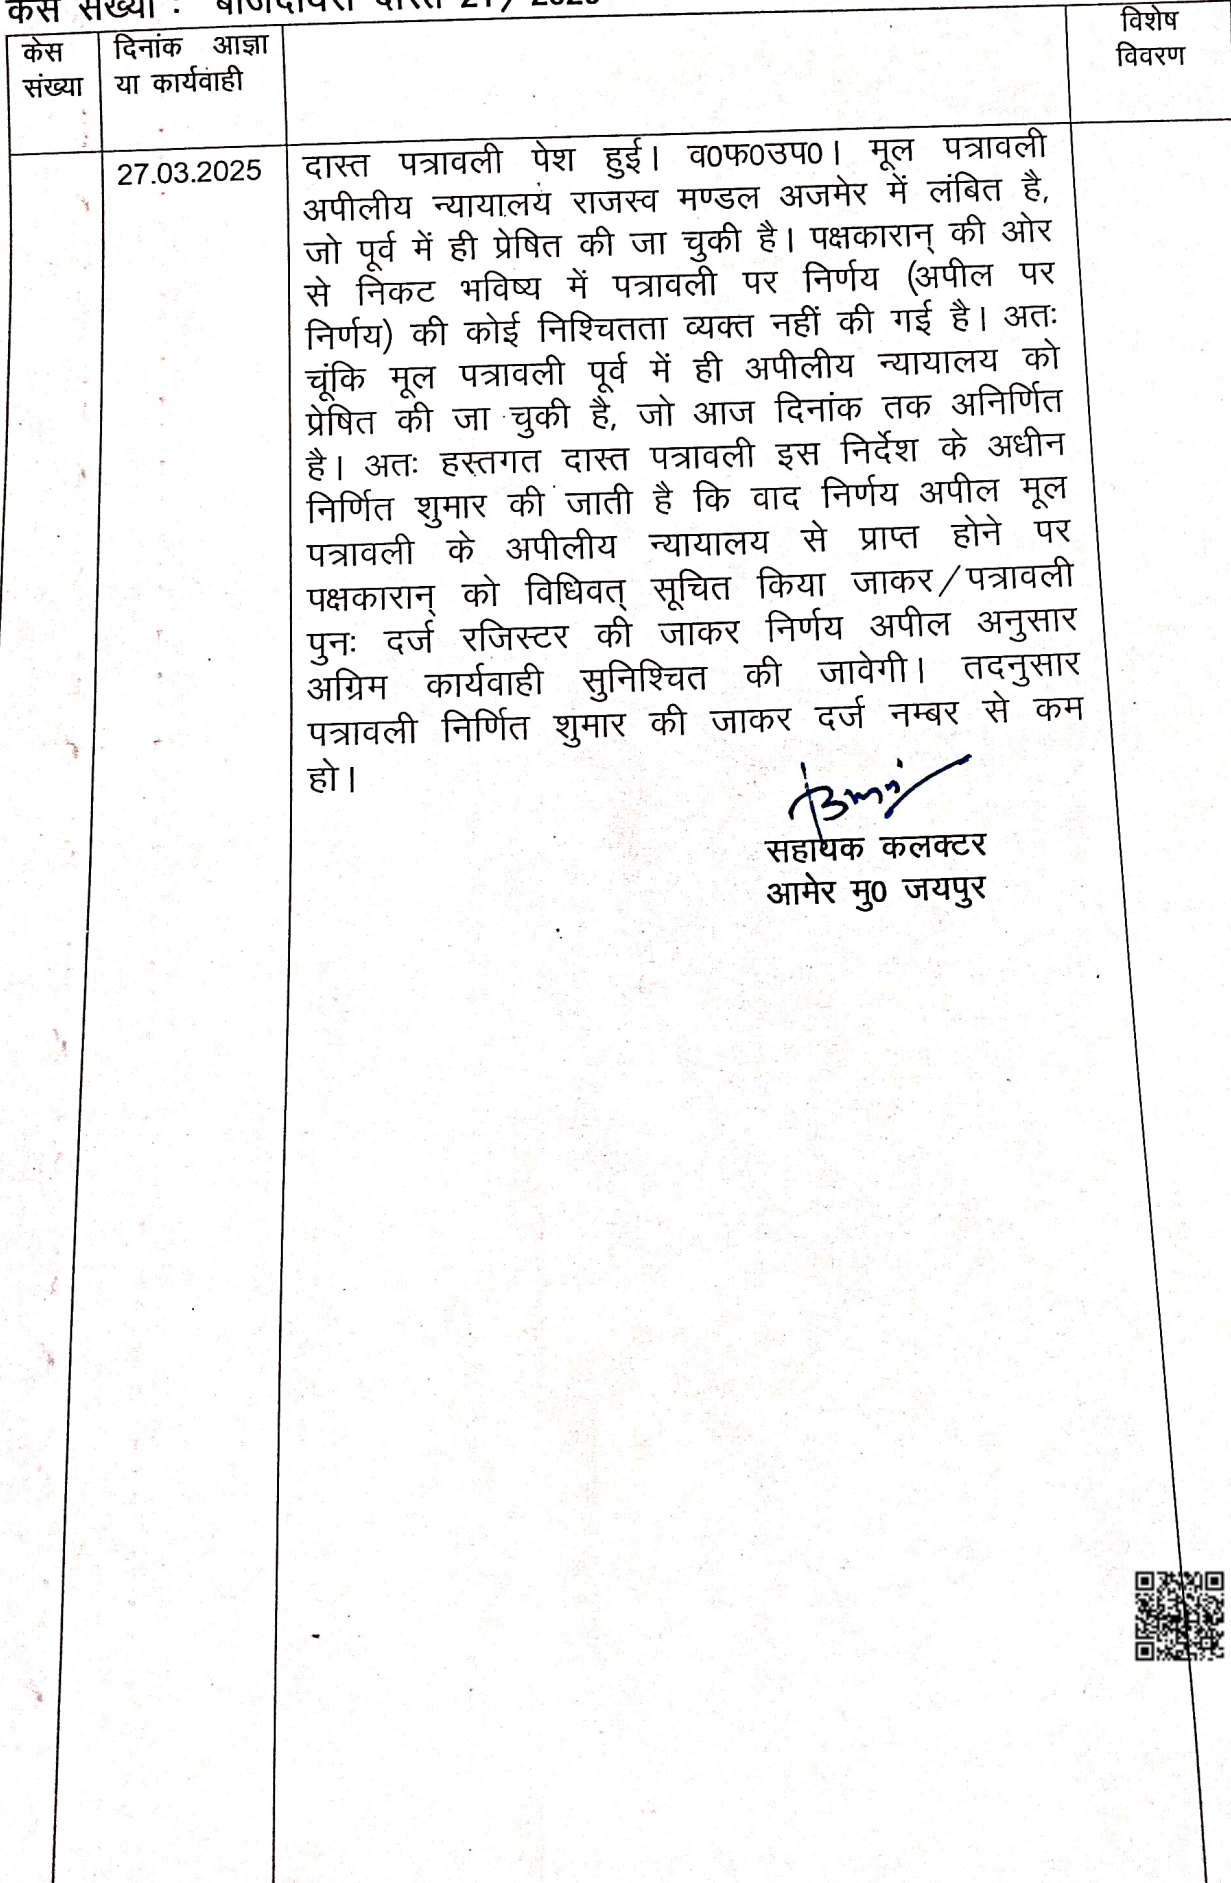 केस संख्या :
केस
संख्या
दिनांक आज्ञा
या कार्यवाही
विशेष
विवरण
27.03.2025
दास्त पत्रावली पेश हुई। व0फ0उप0। मूल पत्रावली
अपीलीय न्यायालय राजस्व मण्डल अजमेर में लंबित है,
जो पूर्व में ही प्रेषित की जा चुकी है। पक्षकारान् की ओर
से निकट भविष्य में पत्रावली पर निर्णय (अपील पर
निर्णय) की कोई निश्चितता व्यक्त नहीं की गई है। अतः
चूंकि मूल पत्रावली पूर्व में ही अपीलीय न्यायालय को
प्रेषित की जा चुकी है, जो आज दिनांक तक अनिर्णित
है। अतः हस्तगत दास्त पत्रावली इस निर्देश के अधीन
निर्णित शुमार की जाती है कि वाद निर्णय अपील मूल
पत्रावली के अपीलीय न्यायालय से प्राप्त होने पर
पक्षकारान् को विधिवत् सूचित किया जाकर/पत्रावली
पुनः दर्ज रजिस्टर की जाकर निर्णय अपील अनुसार
अग्रिम कार्यवाही सुनिश्चित की जावेगी। तदनुसार
पत्रावली निर्णित शुमार की जाकर दर्ज नम्बर से कम
हो।
सहायक कलक्टर
आमेर मु0 जयपुर